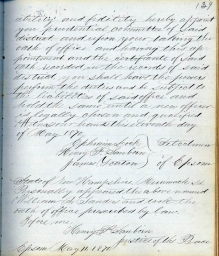 ability and fidelity hereby appoint
you prudential committee of said
district and upon your taking the
oath of office and having this ap-
pointment and the certificate of said
oath recorded in the records of said
district you shall have the powers
perform the duties and be subject to
the liabilities of said office and
hold the same until a new officer
is legally chosen and qualified
Given under our hands this day
of May 1870
Ephraim Locke
Henry F. Sanborn
James Yeaton
Selectmen
of Epsom
State of New Hampshire Merrimack SS
Personally appeared the above named
William Sanders and took the
oath of office prescribed by law.
Before me
Henry F. Sanborn
Justice of the Peace
Epsom May 11. 1870